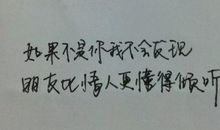 如果不是你我不会发现
朋友比情人更懂得倾听